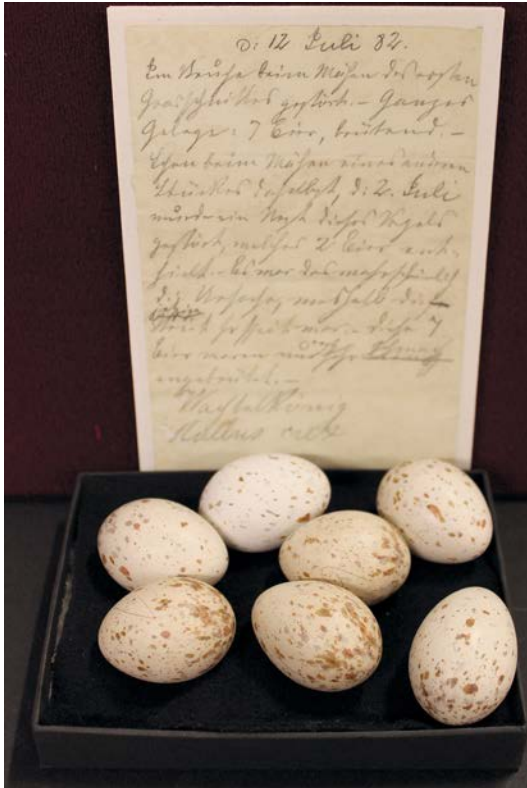 D: 12 Juli 82.
beim Mähen des ersten
Grasschnittes gestört. – Ganzes
Gelege: 7 Eier, brütend. –
Schon beim Mähen eines anderen
Stückes daselbst, d: 2. Juli
wurde ein Nest dieses Vogels
gestört, welches 2 Eier ent-
hielt. – Es war das wahrscheinlich
die Ursache, weshalb die
Brut so spät war. – Diese 7
Eier waren nur
angebrütet. –
Wachtelkönig
Rallus crex